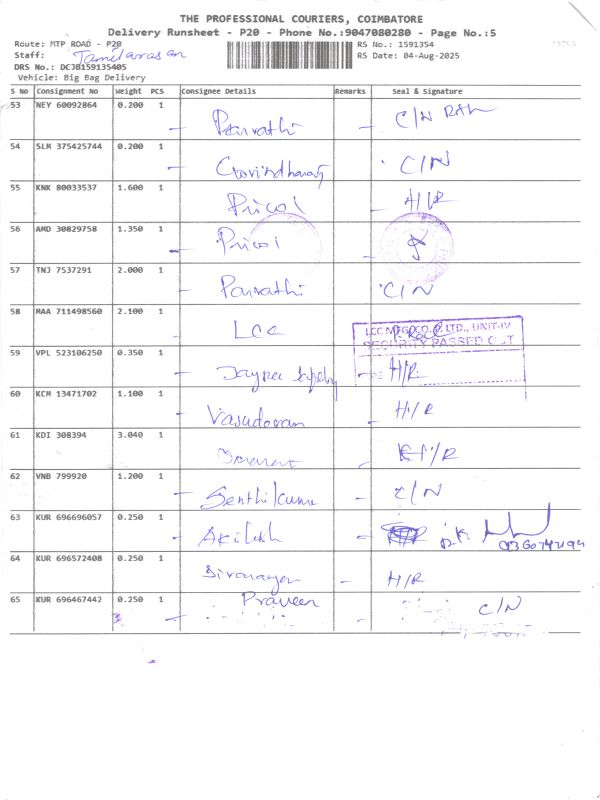 THE PROFESSIONAL COURIERS, COIMBATORE
Delivery Runsheet - P20 - Phone No.:9047080280 - Page No.:5
Route: MTP ROAD - P20 RS No.: 1591354
Staff: Tamilarasan RS Date: 04-Aug-2025
DRS No.: DCJB159135405
Vehicle: Big Bag Delivery
S No Consignment No Weight PCS Consignee Details Remarks Seal & Signature
53 NEY 60092864 0.200 1 Parvathi C/N
54 SLM 375425744 0.200 1 Govindharaj C/N
55 KNK 80033537 1.600 1 Pricol H/R
56 AMD 30829758 1.350 1 Pricol
57 TNJ 7537291 2.000 1 Parvathi C/N
58 MAA 711498560 2.100 1 LCC
LCC MFG CO. P. LTD., UNIT-IV
SECURITY PASSED OUT
59 VPL 523106250 0.350 1 H/R
60 KCM 13471702 1.100 1 Vasudevan H/R
61 KDI 308394 3.040 1 H/R
62 VNB 799920 1.200 1 Senthilkumar C/N
63 KUR 696696057 0.250 1 Akilesh
64 KUR 696572408 0.250 1 H/R
65 KUR 696467442 0.250 1 Praveen C/N